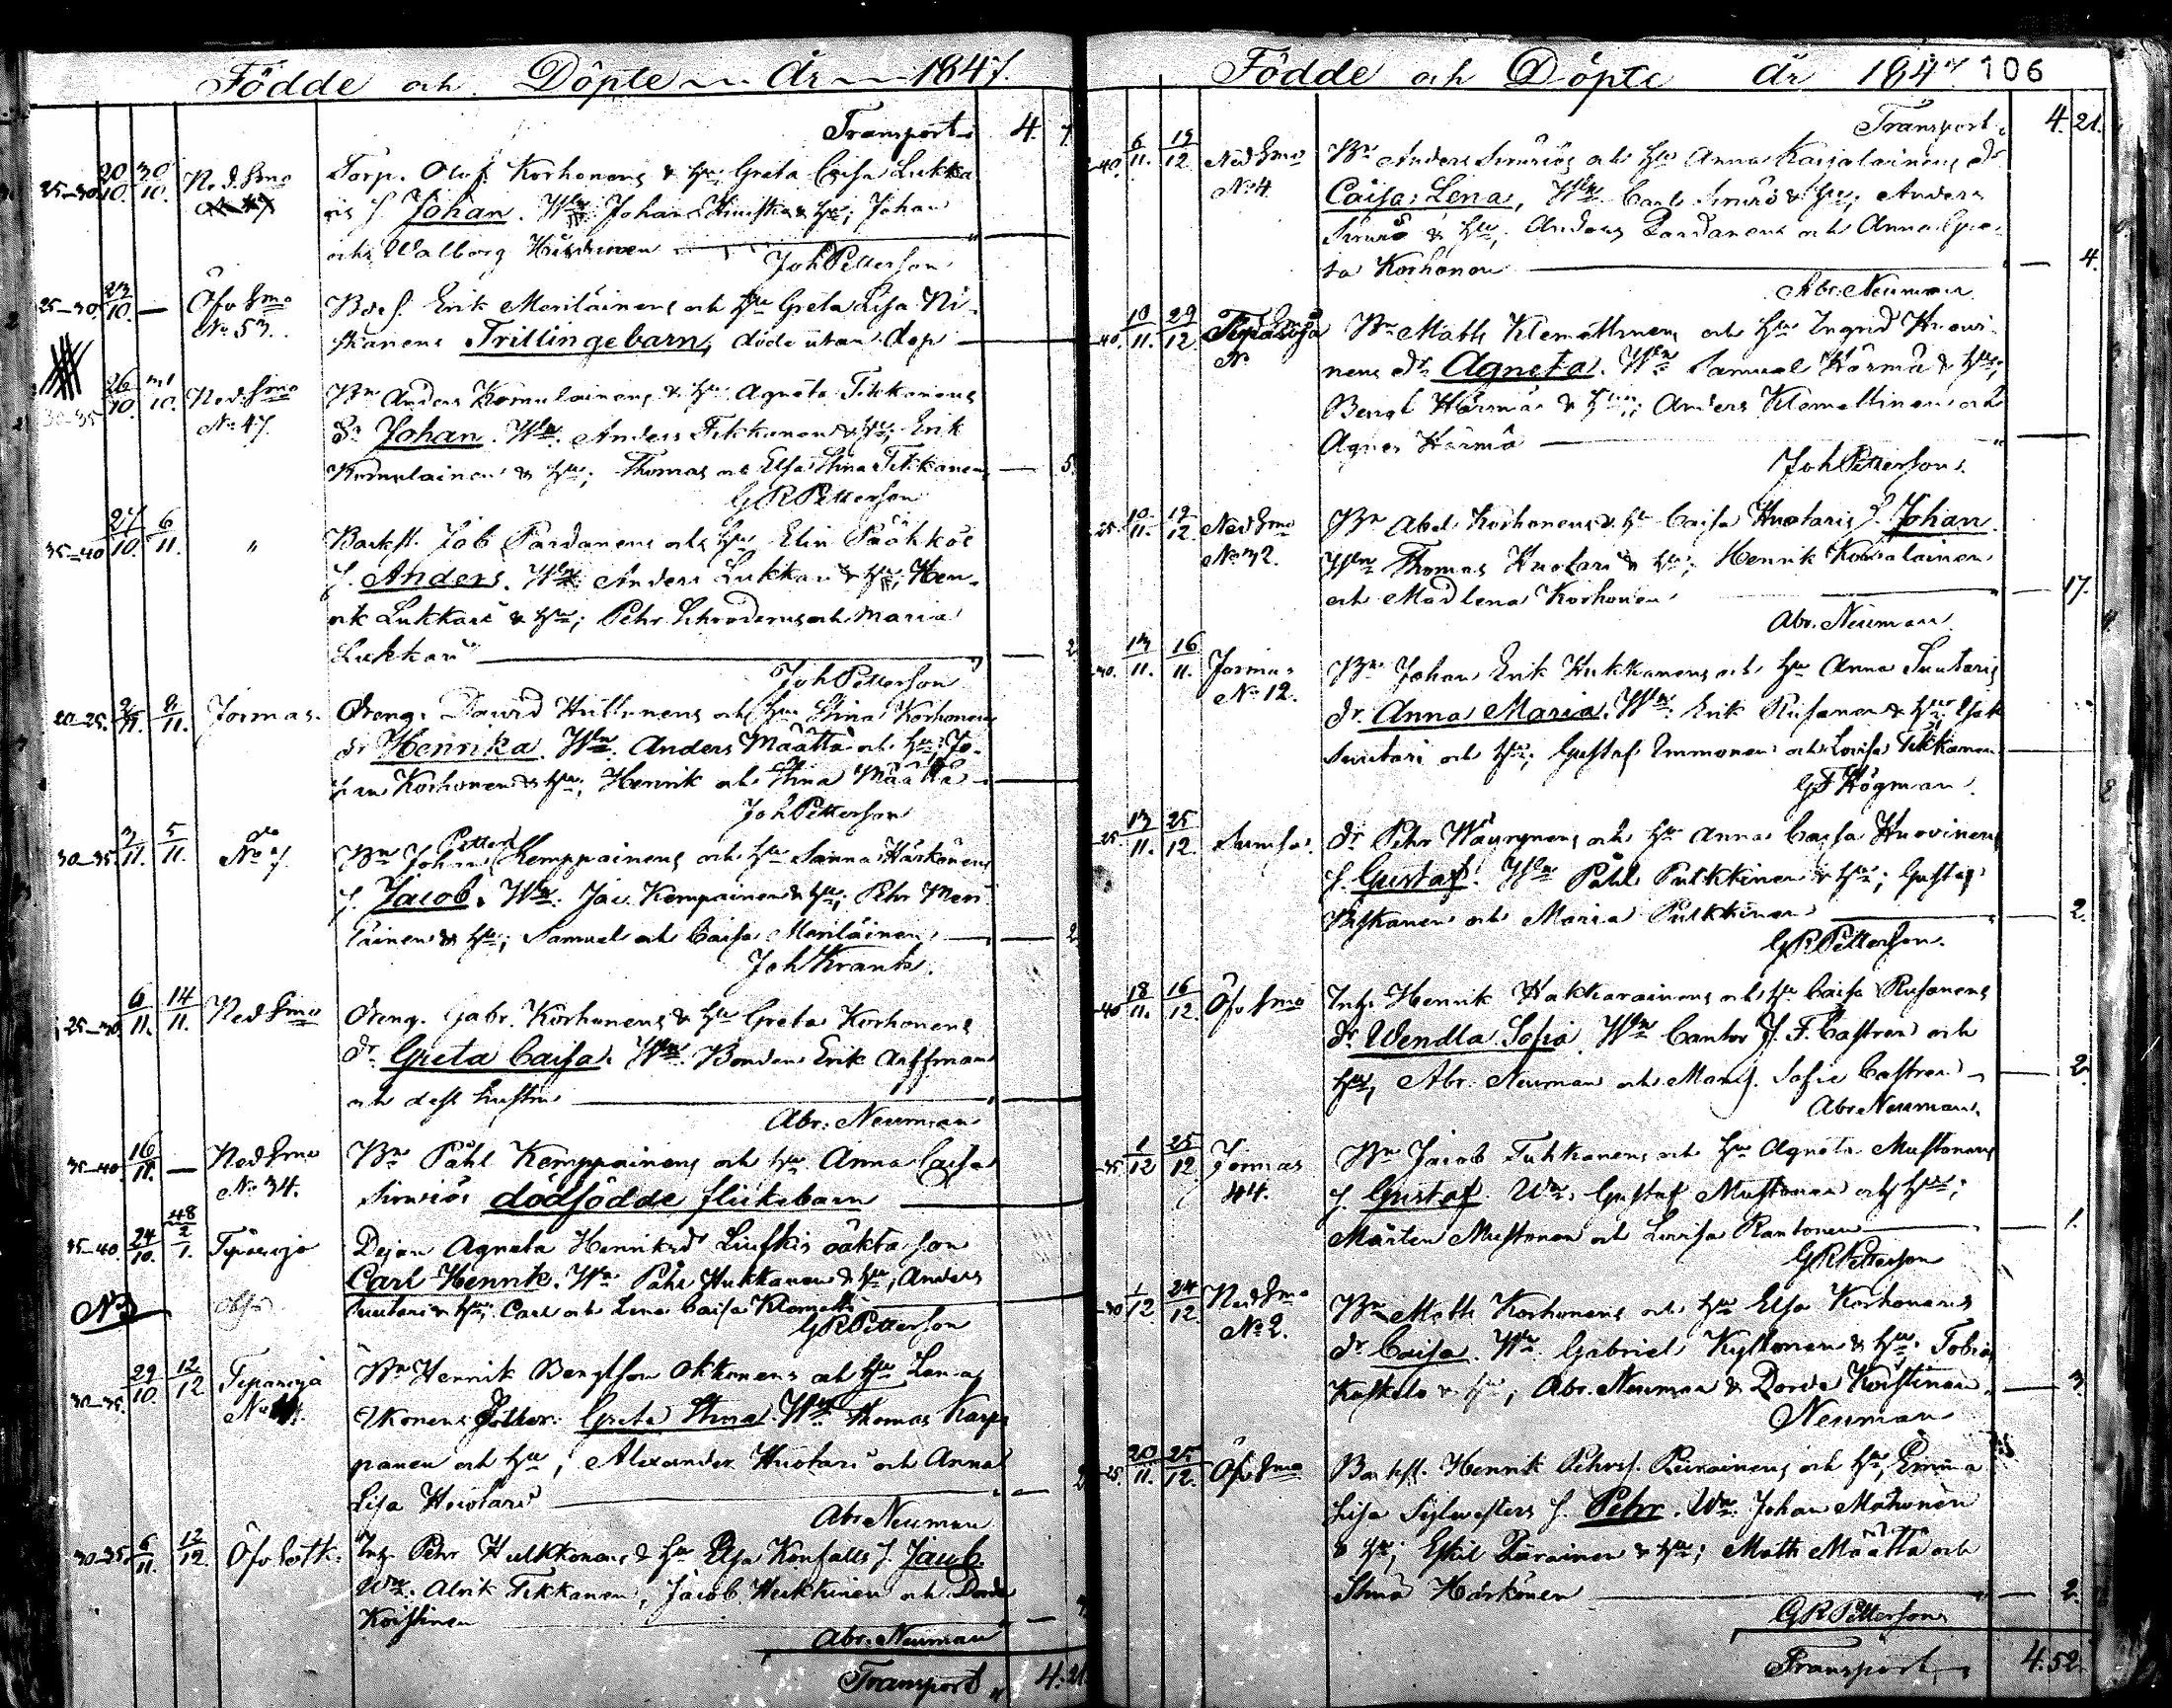 Födde och Döpte År 1847.
Transport 4. 7
25-30 20/10. 30/10. Ned. Smo Torp. Olof Korhonens & Hu Greta Caisa Lukka
ris S. Johan. Wn. Johan & Hu; Johan
och Walborg
Joh Petterson
25-30. 23/10. — Öfv Smo Bds. Erik Meriläinens och Hu Greta Lisa Ni-
No 53. skanens Trillingebarn, döde utan dop
26/10. 31/10. Ned. Smo Bn Anders Komulainens & Hu Agneta Tikkanens
30-35 No 47. Sn Johan. Wn. Anders Tikkanen & Hu; Erik
Komulainen & Hu; Thomas och Elsa Stina Tikkanen — 5
G R Petterson
35-40 27/10. 6/11. " Backst. Job Pardanens och Hu Elin Pääkkös
S. Anders. Wn Anders Lukkari & Hu; Hen-
rik Lukkari & Hu; Pehr Schroderus och Maria
Lukkari — 2
Joh Petterson
20-25. 11. Jormas. Dreng. David Hiltunens och Hu Stina Korhonens
dr Henrika. Wn. Anders Määttä och Hu; Jo-
han Korhonen & Hu; Henrik och Stina Määttä
Joh Petterson
30-35. 3/11. 5/11. No 7. Bn Johan Petter Kemppainens och Hu Sanna Härkönens
S. Jacob. Wn. Jac. Kempainen & Hu; Pehr Meri
läinen & Hu; Samuel och Caisa Meriläinen — 2
Joh Krank.
25-30. 6/11. 14/11. Ned Smo Dreng. Gabr. Korhonens & Hu Greta Korhonens
dr. Greta Caisa. Wn. Bonden Erik Arffman
och dess hustru
Abr. Neuman
35-40. 16/11. — Ned Smo Bn Påhl Kemppainens och Hu Anna Caisa
No 34. Simriös dödfödde flickebarn
35-40. 24/10. 48 2/1. Tipasoja Dejan Agneta Henriksd Liufkis oäkta son
Carl Henrik. Wn Påhl Hukkanen & Hu, Anders
No 3 Suutari & Hu; Carl och Lena Caisa Klemetti
G R Petterson
30-35. 29/10 12/12 Tipasoja Bn Henrik Bengtson Okkonens och Hu Lena
No Ukonens Dotter: Greta Stina. Wn Thomas Karp
panen och Hu; Alexander Huotari och Anna
Lisa Huotari — 2
Abr Neuman
30-35 6/11. 12/12 Öfv Sotk. Inh. Pehr Hulkkonens & Hu Elsa S. Jacob.
Wn. Alrik Tikkanen, Jacob Heikkinen och Dorde
Koistinen
Abr. Neuman
Transport 4. 21
Födde och Döpte År 1847 106
Transport 4. 21.
-40. 6/11. 19/12 Ned Smo Bn Anders Simriös och Hu Anna Karjalainens dr
No 4 Caisa Lena, Wn Carl Simriö & Hu; Anders
Simriö & Hu; Anders Pardanen och Anna Gre-
ta Korhonen — 4.
Abr. Neuman
-40. 10/11. 29/12 Tipasoja Bn Matts Klemettinens och Hu Ingrid Huovi-
No nens dr Agneta. Wn Samuel Härmä & Hu;
Bengt Härmä & Hu; Anders Klemettinen och
Agnes Härmä
Joh Petterson.
-25. 10/11. 12/12 Ned Smo Bn Abel Korhonens & Hu Caisa Huotaris S. Johan.
No 32. Wn Thomas Huotari & Hu; Henrik
och Madlena Korhonen — 17.
Abr. Neuman
-40. 13/11. 16/11. Jormas Bn Johan Erik Hukkanens och Hu Anna Suutaris
No 12. dr. Anna Maria. Wn Erik Rusanen & Hu; Isak
Suutari och Hu; Gustaf Immonen och Lovisa Tikkanen
G F Högman.
-25. 13/11. 25/12. Sumsa. dr Pehr Wäyrynens och Hu Anna Caisa Huovinens
S. Gustaf. Wn Påhl Pulkkinen & Hu; Gustaf
och Maria Pulkkinen — 2.
G R Petterson.
-40 18/11. 16/12. Öfv Smo Inh. Henrik Hakkarainens och Hu Caisa Rusanens
dr Wendla Sofia. Wn Cantor J. F. Castren och
Hu, Abr. Neuman och Mams. Sofie Castren — 2.
Abr Neuman.
-35 1/12 25/12 Jormas Bn Jacob Tukkanens och Hu Agneta Mustonens
44. S. Gustaf. Wn. Gustaf Mustonen och Hu;
Mårten Mustonen och Lovisa Rantonen — 1.
G R Petterson
-30 1/12. 24/12. Ned Smo Bn Matts Korhonens och Hu Elsa Korhonens
No 2. dr Caisa. Wn Gabriel Kyllönen & Hu; Tobias
Kaskelo & Hu; Abr. Neuman & Dorde Koistinen — 3
Neuman
-25 20/11. 25/12. Öfv Smo Backst. Henrik Pehrs. Piirainens och Hu, Emma
Lisa Sylvesters S. Pehr. Wn. Johan Mähönen
& Hu; Eskil Piirainen & Hu; Matts Määttä och
Stina Härkönen — 2.
G R Petterson
Transport 4. 52